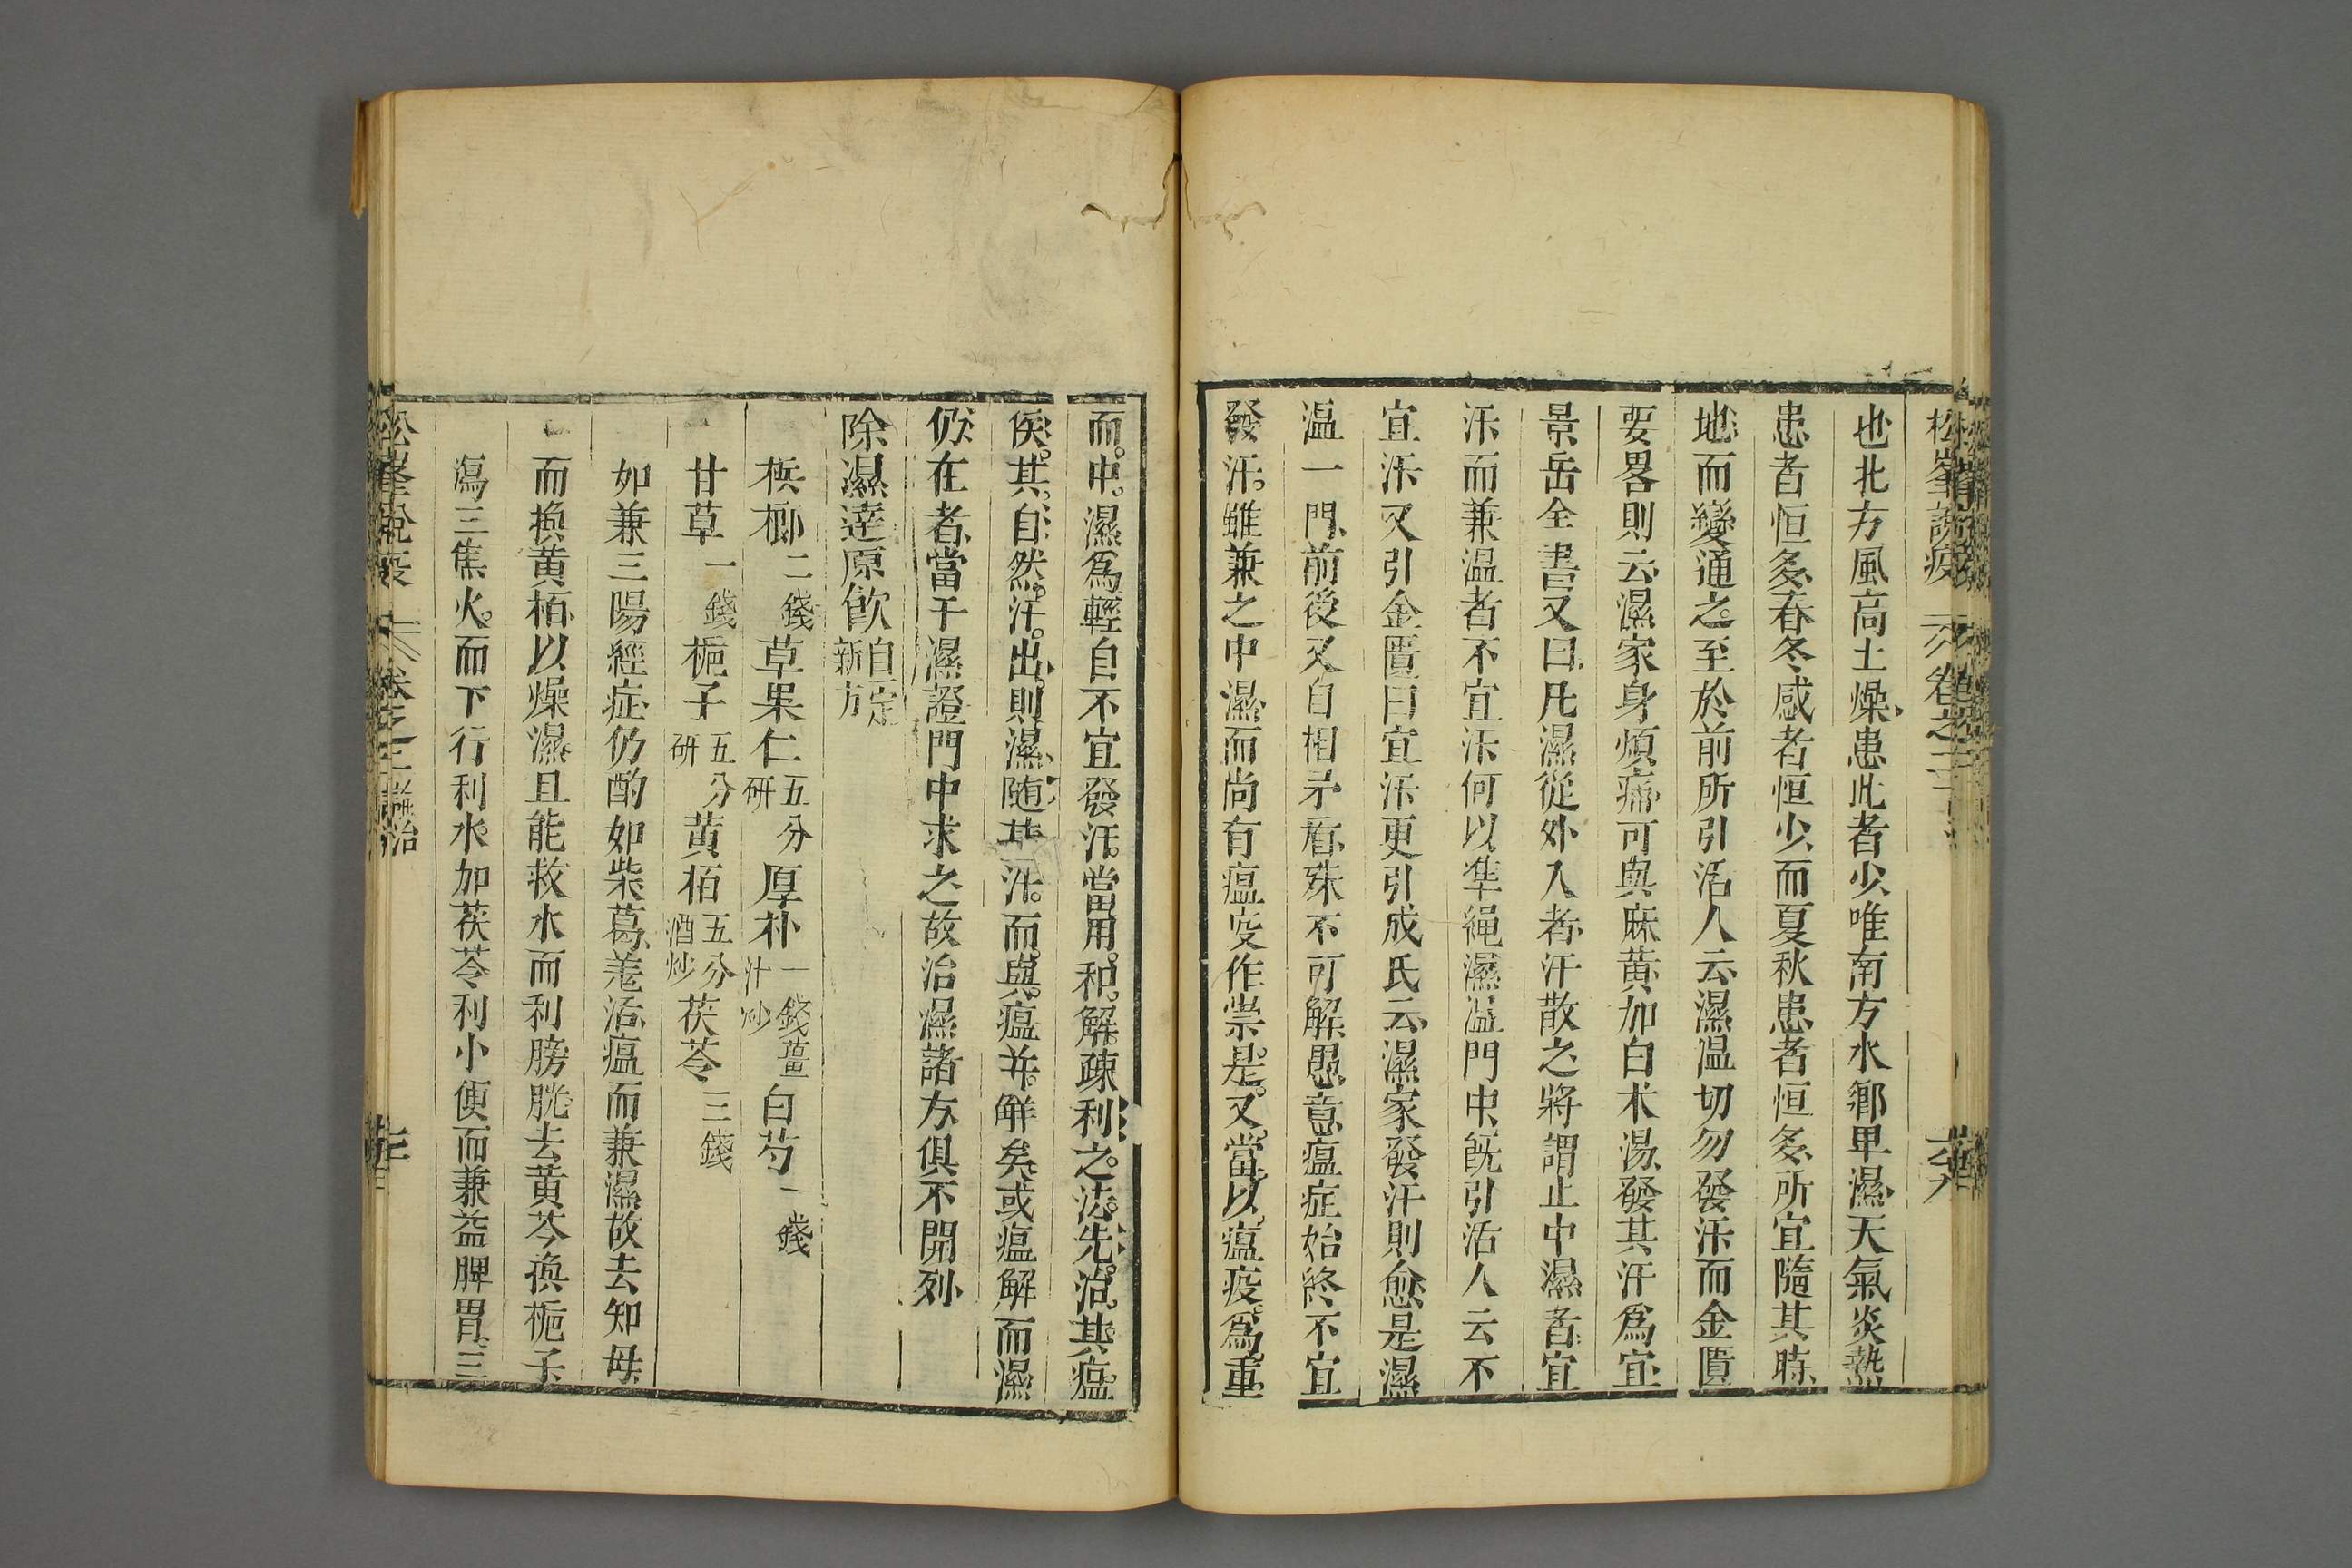 松峯說疫 卷之二
也北方風高土燥患此者少唯南方水鄉卑濕天氣炎熱
患者恒多春冬感者恒少而夏秋患者恒多所宜隨其時
地而變通之至於前所引活人云濕温切勿發汗而金匱
要畧則云濕家身煩痛可與麻黃加白术湯發其汗爲宜
景岳全書又曰凡濕從外入者汗散之將謂止中濕者宜
汗而兼温者不宜汗何以準繩濕温門中既引活人云不
宜汗又引金匱曰宜汗更引成氏云濕家發汗則愈是濕
温一門前後又自相矛盾殊不可解愚意瘟症始終不宜
發汗雖兼之中濕而尚有瘟疫作祟是又當以瘟疫爲重
而中濕爲輕自不宜發汗當用和解疎利之法先治其瘟
俟其自然汗出則濕隨其汗而與瘟并解矣或瘟解而濕
仍在者當于濕證門中求之故治濕諸方俱不開列
除濕達原飲 自定新方
檳榔 二錢 草果仁 五分研 厚朴 一錢薑汁炒 白芍 一錢
甘草 一錢 梔子 五分研 黃栢 五分酒炒 茯苓 三錢
如兼三陽經症仍酌加柴葛羗活瘟而兼濕故去知母
而換黃栢以燥濕且能救水而利膀胱去黃芩換梔子
瀉三焦火而下行利水加茯苓利小便而兼益脾胃三
松峯說疫 卷之二 論治